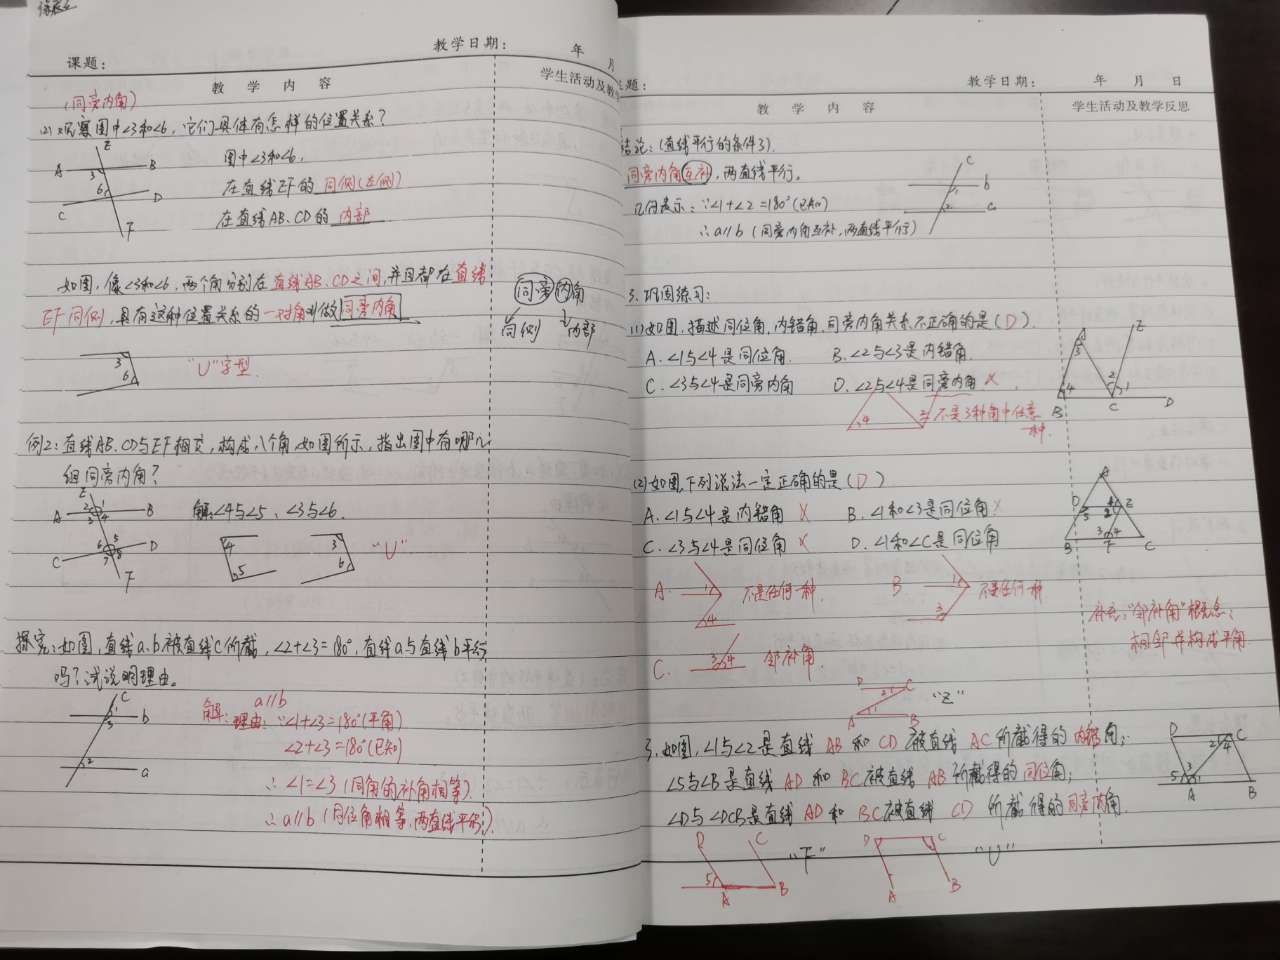 教学日期： 年 月
课题：
教 学 内 容 学生活动及教学
(同旁内角)
(2) 观察图中∠3和∠6，它们具体有怎样的位置关系？
图中∠3和∠6，
在直线EF的 同侧(左侧)
在直线AB、CD的 内部
E
A 3 B
6 D
C
F
如图，像∠3和∠6，两个角分别在直线AB、CD之间，并且都在直线
EF同侧，具有这种位置关系的一对角叫做同旁内角
同旁内角
同侧 内部
3
6
"U"字型
例2：直线AB、CD与EF相交，构成八个角，如图所示，指出图中有哪几
组同旁内角？
解：∠4与∠5、∠3与∠6.
E
A 2 1 B
3 4
C 6 5 D
7 8
F
4 3
5 6
"U"
探究：如图，直线a、b被直线C所截，∠2+∠3=180°，直线a与直线b平行
吗？试说明理由。
C
1 b
3
2 a
解：a∥b
理由：∵∠1+∠3=180°(平角)
∠2+∠3=180°(已知)
∴∠1=∠3 (同角的补角相等)
∴a∥b (同位角相等，两直线平行)
题：
教学日期： 年 月 日
教 学 内 容 学生活动及教学反思
结论：(直线平行的条件3).
同旁内角互补，两直线平行。
几何表示：∵∠1+∠2=180°(已知)
∴a∥b (同旁内角互补，两直线平行)
C
1 b
2 a
3. 巩固练习：
(1) 如图，描述同位角、内错角、同旁内角关系不正确的是 (D).
A. ∠1与∠4是同位角. B. ∠2与∠3是内错角.
C. ∠3与∠4是同旁内角 D. ∠2与∠4是同旁内角 ×.
4 2 不是3种角中任意
一种.
A E
3
4 2 1
B C D
(2) 如图，下列说法一定正确的是 (D)
A. ∠1与∠4是内错角 × B. ∠1和∠3是同位角 ×
C. ∠3与∠4是同位角 × D. ∠1和∠C是同位角
A
D E
5
3 4
B F C
A. 1 4 不是任何一种. B 1 3 不是任何一种
C. 3 4 邻补角.
补充："邻补角"概念：
相邻并构成平角
D C
2
1
A B "Z"
3. 如图，∠1与∠2是直线 AB 和 CD 被直线 AC 所截得的 内错角；
∠5与∠B是直线 AD 和 BC被直线 AB 所截得的同位角；
∠D与∠DCB是直线 AD 和 BC被直线 CD 所截得的同旁内角.
D C
2 4
3
5 1
A B
D C
5
A B "F"
D C
A B "U"